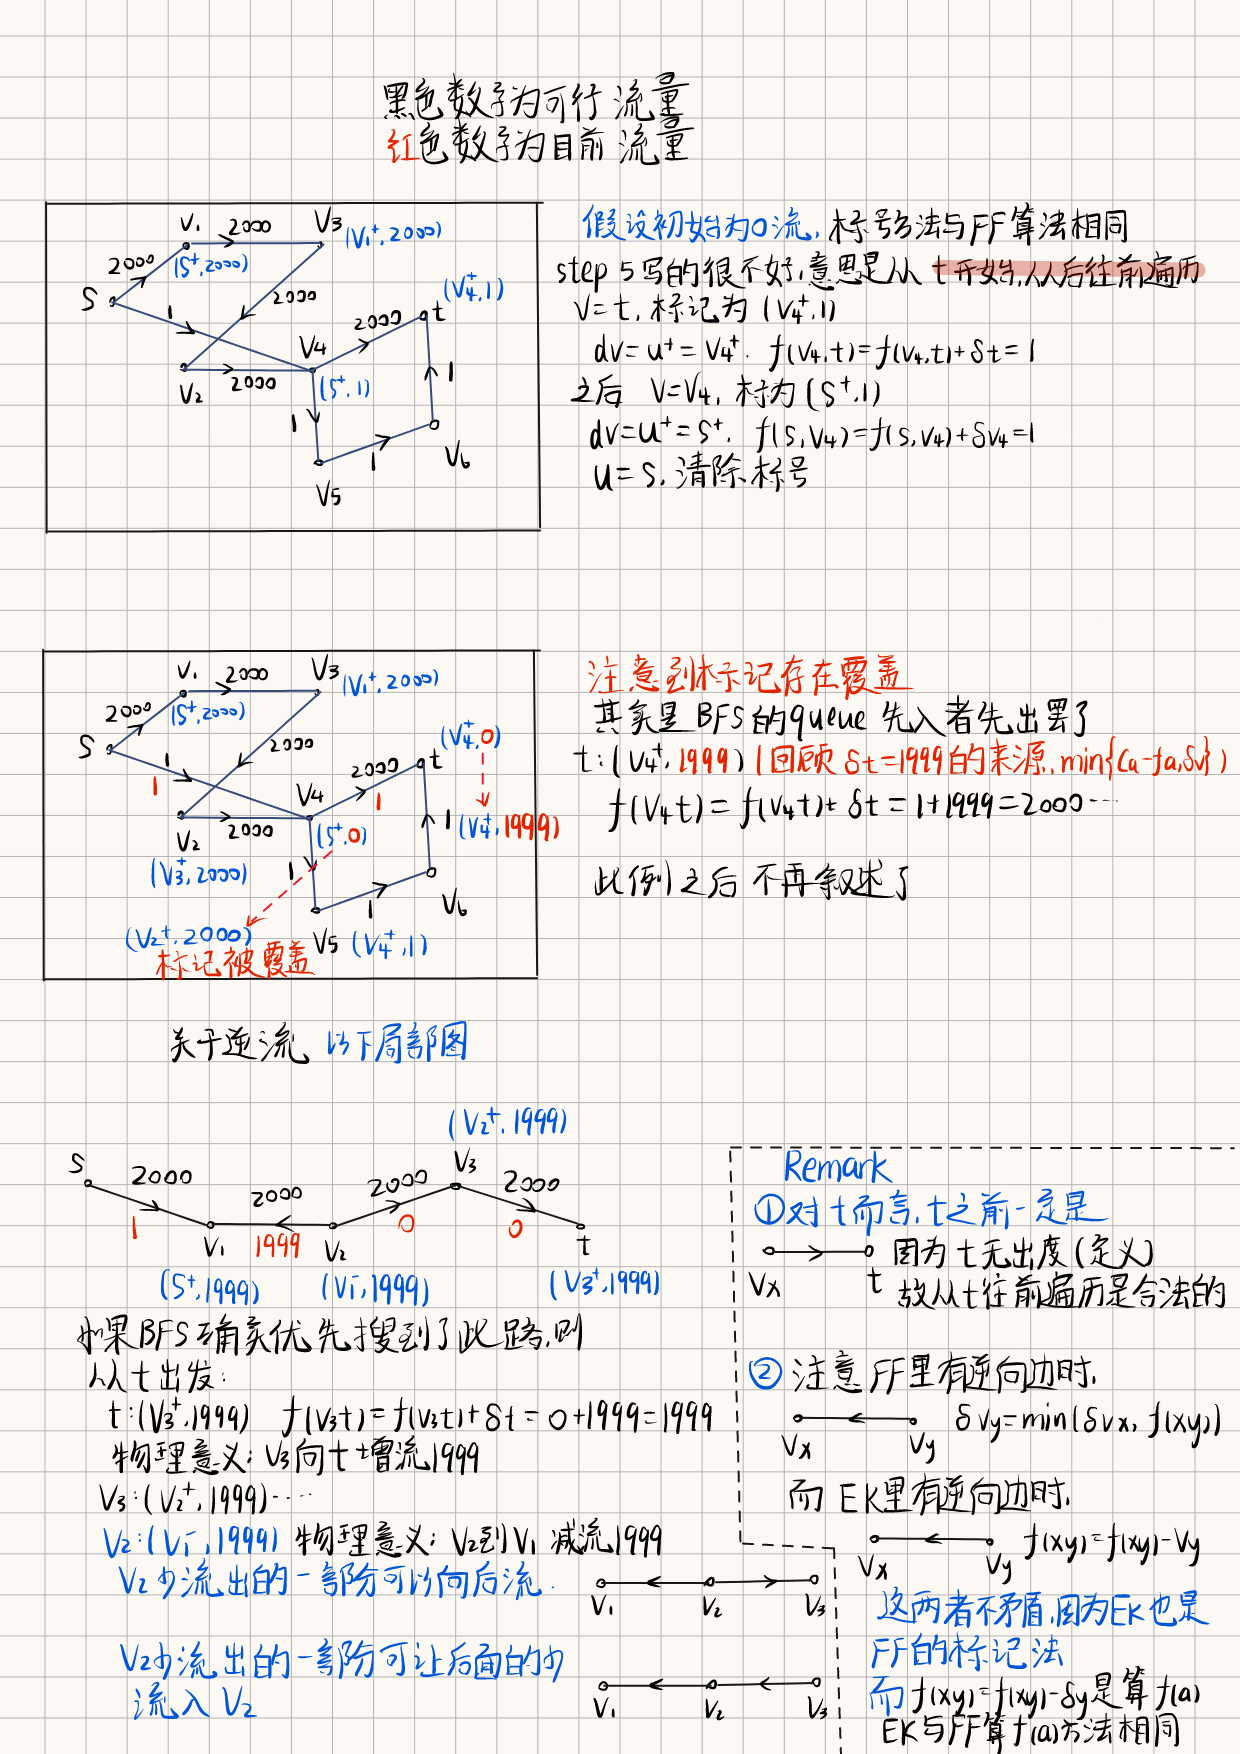 黑色数字为可行流量
红色数字为目前流量
V₁ 2000 V₃ (V₁⁺, 2000)
2000 (S⁺, 2000)
S 1 2000 (V₄⁺, 1)
V₄ 2000 t
V₂ 2000 (S⁺, 1) 1
1
1 V₆
V₅
假设初始为0流, 标号方法与FF算法相同
step 5写的很不好, 意思是从 t开始, 从后往前遍历
V=t, 标记为 (V₄⁺, 1)
dv=u⁺=V₄⁺. f(V₄,t)=f(V₄,t)+δt=1
之后 V=V₄, 标为 (S⁺, 1)
dv=u⁺=S⁺. f(S,V₄)=f(S,V₄)+δV₄=1
u=S, 清除标号
V₁ 2000 V₃ (V₁⁺, 2000)
2000 (S⁺, 2000)
S 1 2000 (V₄⁺, 0)
1 V₄ 2000 t
1
V₂ 2000 (S⁺, 0) 1 (V₄⁺, 1999)
(V₃⁺, 2000) 1
1 V₆
(V₂⁺, 2000) V₅ (V₄⁺, 1)
标记被覆盖
注意到标记存在覆盖
其实是 BFS的queue 先入者先出罢了
t: (V₄⁺, 1999) (回顾 δt=1999的来源, min{Ca-fa, δv})
f(V₄t) = f(V₄t)+ δt = 1+1999=2000…
此例之后 不再叙述了
关于逆流 以下局部图
(V₂⁺, 1999)
S 2000 2000 2000 V₃ 2000
1 V₁ 1999 V₂ 0 0 t
(S⁺, 1999) (V₁⁻, 1999) (V₃⁺, 1999)
如果BFS确实优先搜到了此路, 则
从t出发:
t: (V₃⁺, 1999) f(V₃t)=f(V₃t)+δt=0+1999=1999
物理意义: V₃向t增流1999
V₃: (V₂⁺, 1999)····
V₂: (V₁⁻, 1999) 物理意义: V₂到V₁ 减流1999
V₂少流出的一部分可以向后流.
V₁ V₂ V₃
V₂少流出的一部分可让后面的少
流入 V₂
V₁ V₂ V₃
Remark
①对t而言, t之前一定是
Vx t 因为 t无出度(定义)
故从t往前遍历是合法的
② 注意 FF里有逆向边时,
Vx Vy δVy=min(δVx, f(xy))
而 EK里有逆向边时,
Vx Vy f(xy)=f(xy)-Vy
这两者不矛盾, 因为EK也是
FF的标记法
而 f(xy)=f(xy)-δy是算f(a)
EK与FF算f(a)方法相同